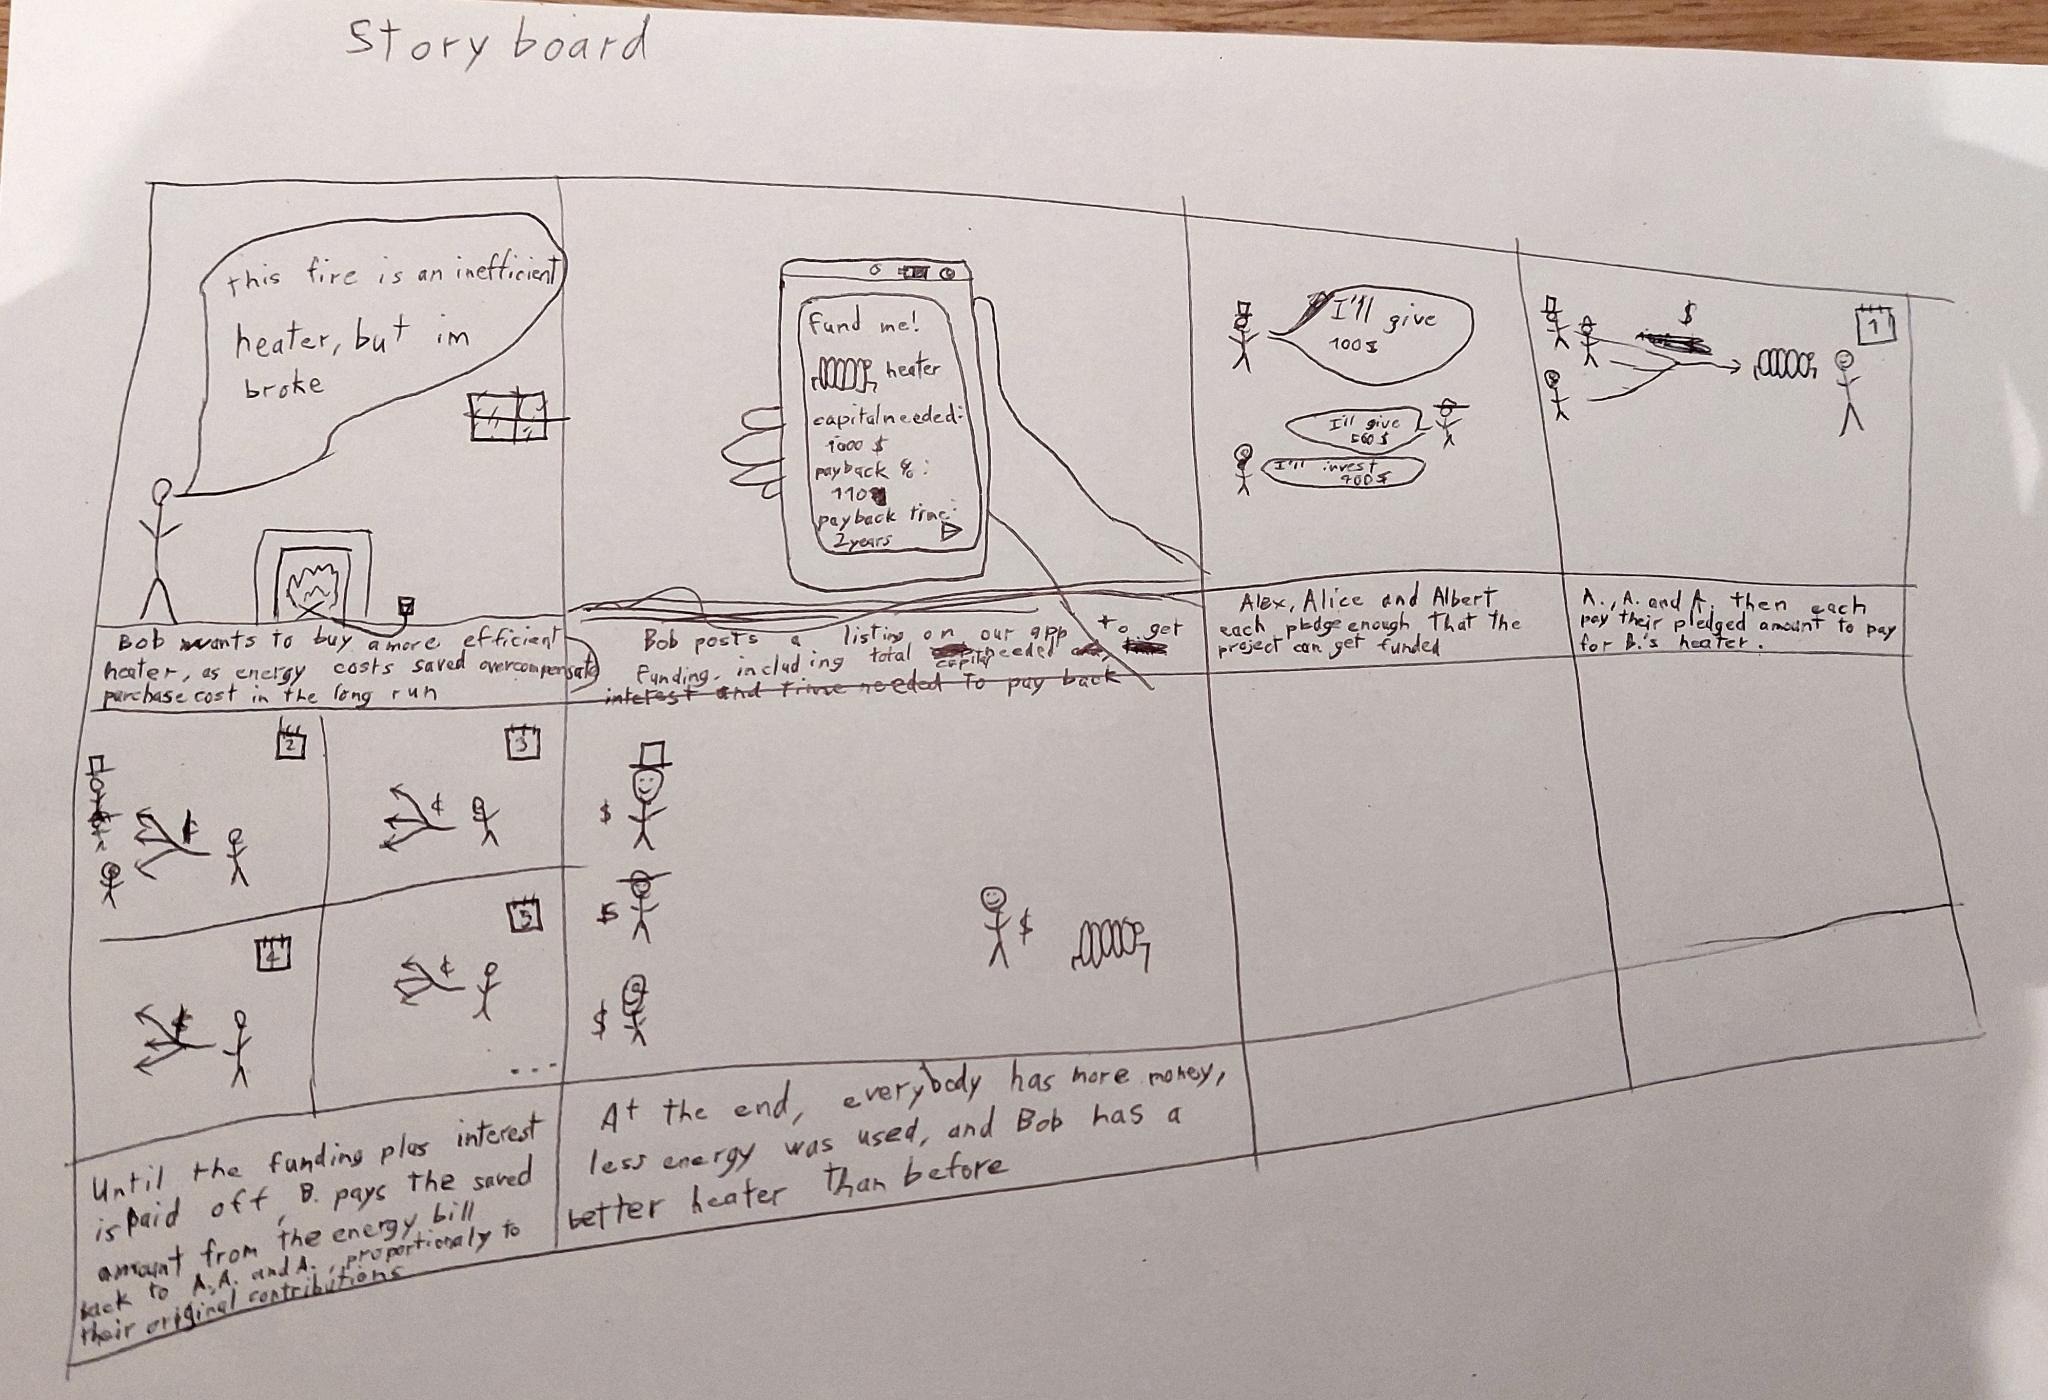 Story board
this fire is an inefficient
heater, but im
broke
Bob wants to buy a more efficient
heater, as energy costs saved overcompensate
purchase cost in the long run
Fund me!
heater
capital needed:
1000 $
payback %:
110
payback time:
2 years
Bob posts a listing on our app to get
funding, including total capital needed
interest and time needed to pay back
I'll give
100$
I'll give
500$
I'll invest
400$
Alex, Alice and Albert
each pledge enough that the
project can get funded
$
1
A., A. and A. then each
pay their pledged amount to pay
for B.'s heater.
2
¢
3
¢
4
¢
5
¢
...
Until the funding plus interest
is paid off, B. pays the saved
amount from the energy bill
back to A., A. and A., proportionaly to
their original contributions
$
$
$
$
At the end, everybody has more money,
less energy was used, and Bob has a
better heater than before